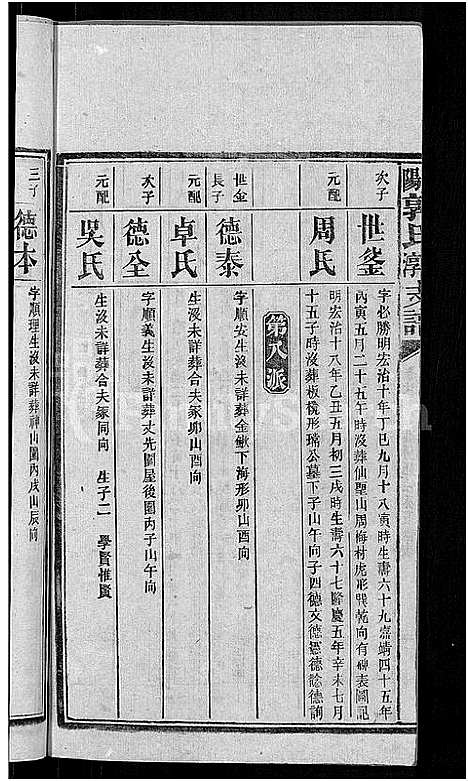 陽郭氏㵎支譜
次子 世釜 字必勝明宏治十年丁巳九月十八寅時生壽六十九嘉靖四十五年
丙寅五月二十五午時沒葬仙聖山周梅村虎形巽乾向有碑表圖記
元配 周氏 明宏治十八年乙丑五月初三戌時生壽六十七隆慶五年辛未七月
十五子時沒葬板櫈形瑞公墓下子山午向子四德文德憲德諗德詢
第八派
世金長子 德泰 字順安生沒未詳葬金鍬下海形卯山酉向
元配 卓氏 生沒未詳葬合夫冢卯山酉向
次子 德全 字順義生沒未詳葬丈先圍屋後圍内子山午向
元配 吳氏 生沒未詳葬合夫冢同向 生子二 學賢惟賢
三子 德本 字順理生沒未詳葬神山圍丙戌山辰向